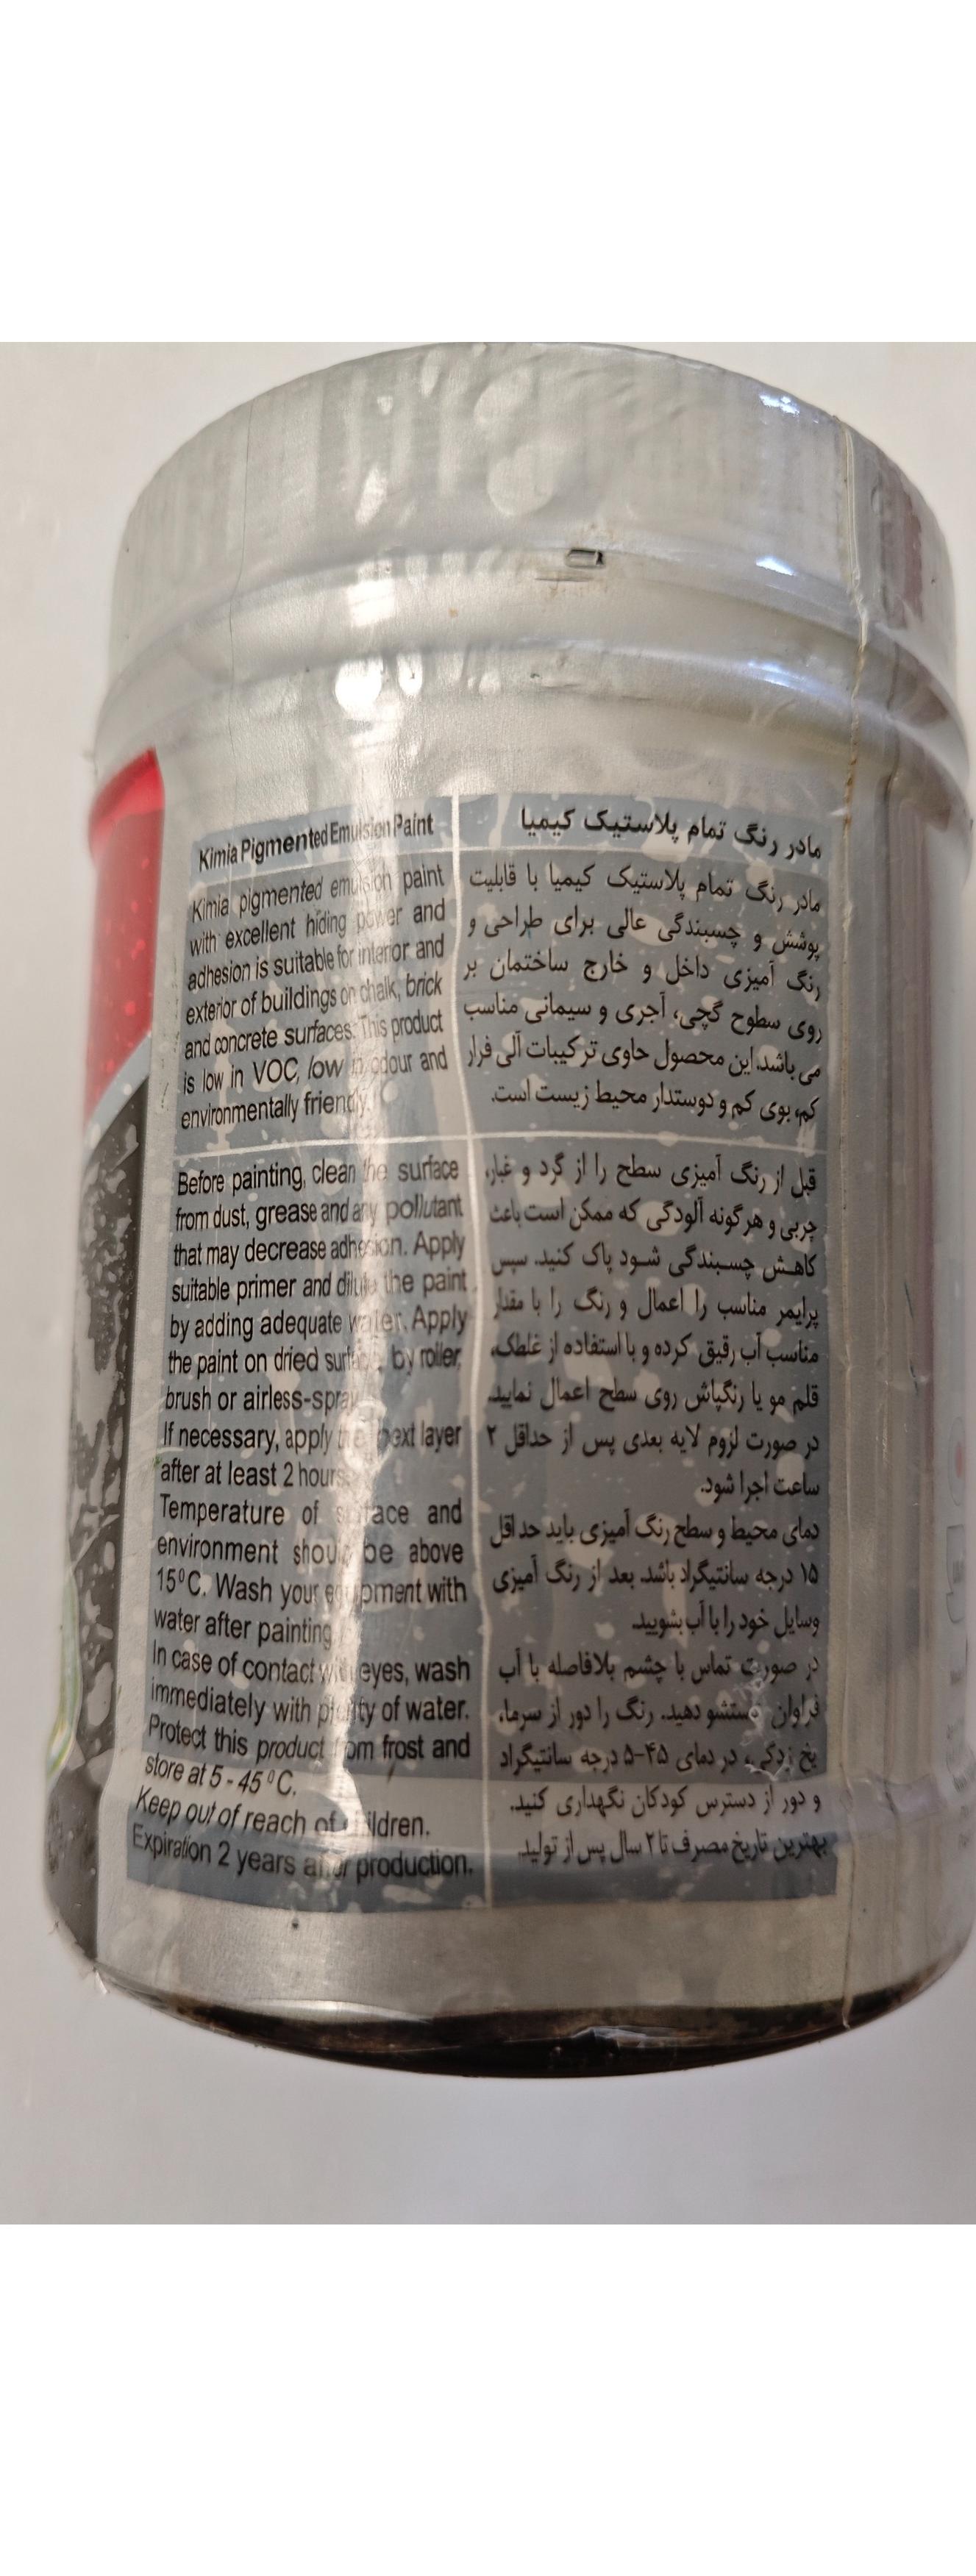 Kimia Pigmented Emulsion Paint
Kimia pigmented emulsion paint
with excellent hiding power and
adhesion is suitable for interior and
exterior of buildings on chalk, brick
and concrete surfaces. This product
is low in VOC, low in odour and
environmentally friendly.
Before painting, clean the surface
from dust, grease and any pollutant
that may decrease adhesion. Apply
suitable primer and dilute the paint
by adding adequate water. Apply
the paint on dried surface, by roller,
brush or airless-spray.
If necessary, apply the next layer
after at least 2 hours.
Temperature of surface and
environment should be above
15°C. Wash your equipment with
water after painting
In case of contact with eyes, wash
immediately with plenty of water.
Protect this product from frost and
store at 5 - 45 °C.
Keep out of reach of children.
Expiration 2 years after production.
مادر رنگ تمام پلاستیک کیمیا
مادر رنگ تمام پلاستیک کیمیا با قابلیت
پوشش و چسبندگی عالی برای طراحی و
رنگ آمیزی داخل و خارج ساختمان بر
روی سطوح گچی، آجری و سیمانی مناسب
می باشد. این محصول حاوی ترکیبات آلی فرار
کم، بوی کم و دوستدار محیط زیست است.
قبل از رنگ آمیزی سطح را از گرد و غبار،
چربی و هرگونه آلودگی که ممکن است باعث
کاهش چسبندگی شود پاک کنید. سپس
پرایمر مناسب را اعمال و رنگ را با مقدار
مناسب آب رقیق کرده و با استفاده از غلطک،
قلم مو یا رنگپاش روی سطح اعمال نمایید.
در صورت لزوم لایه بعدی پس از حداقل ۲
ساعت اجرا شود.
دمای محیط و سطح رنگ آمیزی باید حداقل
۱۵ درجه سانتیگراد باشد. بعد از رنگ آمیزی
وسایل خود را با آب بشویید.
در صورت تماس با چشم بلافاصله با آب
فراوان شستشو دهید. رنگ را دور از سرما،
یخ زدگی، در دمای ۴۵-۵ درجه سانتیگراد
و دور از دسترس کودکان نگهداری کنید.
بهترین تاریخ مصرف تا ۲ سال پس از تولید.